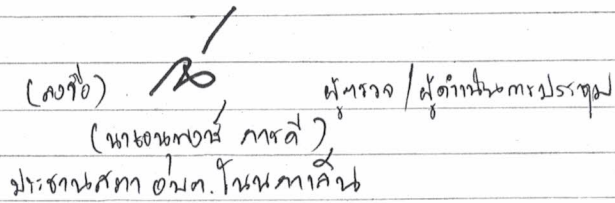 (ลงชื่อ) ผู้ตรวจ / ผู้ดำเนินการประชุม
(นายอนุพงษ์ ภารดี)
ประธานสภา อบต. โนนกาเล็น